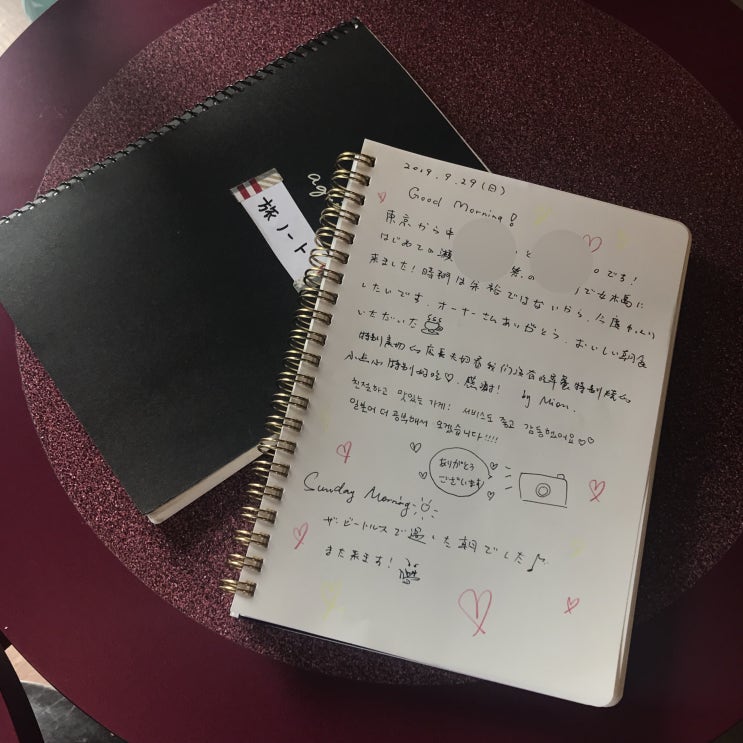 ag
旅ノート
2019.9.29(日)
Good Morning!
東京から申 と です!
はじめての瀬 笑の で女木島に
来ました!時間は余裕ではないから、今度ゆっくり
したいです。オーナーさんありがとう。おいしい朝食
いただいた
特別親切的店長夫婦 我们 早餐特別版的
小点心特別好吃♡。感謝! by Mion.
친절하고 맛있는 가게! 서비스도 좋고 감동했어요♡♡
일본어 더 공부해서 오겠습니다!!!!
ありがとう
ございます
Sunday Morning
ザ・ビートルズで過した朝でした♪
また来ます!